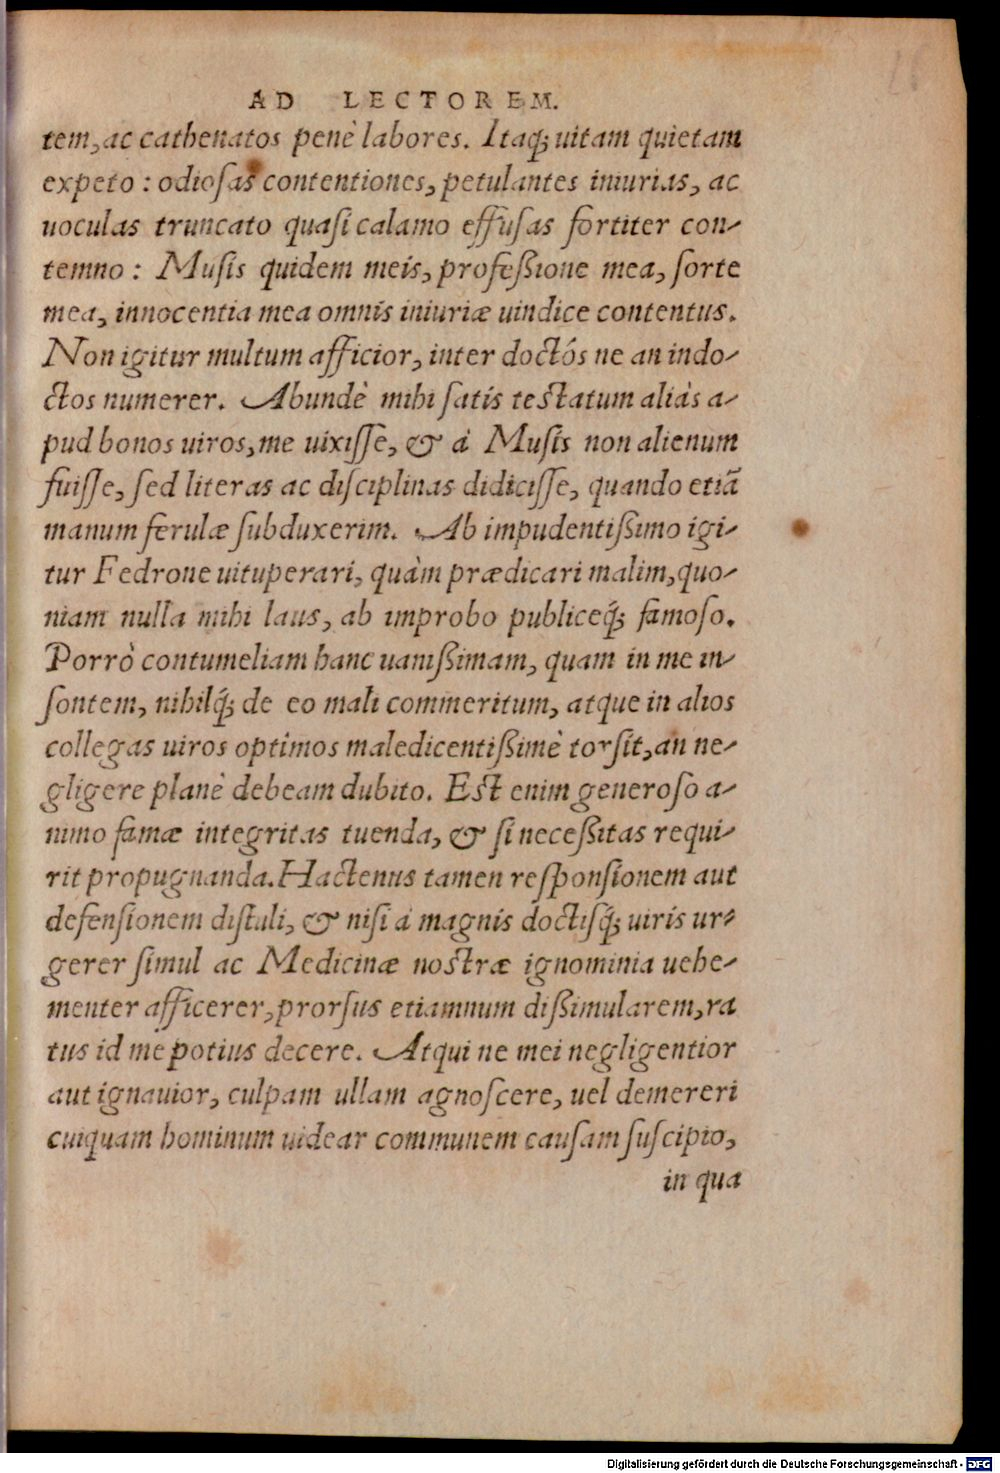 26
AD LECTOREM.
tem, ac cathenatos penè labores. Itaq; uitam quietam
expeto : odiosas contentiones, petulantes iniurias, ac
uoculas truncato quasi calamo effusas fortiter con-
temno : Musis quidem meis, professione mea, sorte
mea, innocentia mea omnis iniuriæ uindice contentus.
Non igitur multum afficior, inter doctós ne an indo-
ctos numerer. Abundè mihi satis testatum aliàs a-
pud bonos uiros, me uixisse, & à Musis non alienum
fuisse, sed literas ac disciplinas didicisse, quando etiã
manum ferulæ subduxerim. Ab impudentißimo igi-
tur Fedrone uituperari, quàm prædicari malim, quo-
niam nulla mihi laus, ab improbo publiceq́; famoso.
Porrò contumeliam hanc uanißimam, quam in me in-
sontem, nihilq́; de eo mali commeritum, atque in alios
collegas uiros optimos maledicentißimè torsit, an ne-
gligere planè debeam dubito. Est enim generoso a-
nimo famæ integritas tuenda, & si neceßitas requi-
rit propugnanda. Hactenus tamen responsionem aut
defensionem distuli, & nisi à magnis doctisq́; uiris ur-
gerer simul ac Medicinæ nostræ ignominia uehe-
menter afficerer, prorsus etiamnum dißimularem, ra
tus id me potius decere. Atqui ne mei negligentior
aut ignauior, culpam ullam agnoscere, uel demereri
cuiquam hominum uidear communem causam suscipio,
in qua
Digitalisierung gefördert durch die Deutsche Forschungsgemeinschaft - DFG